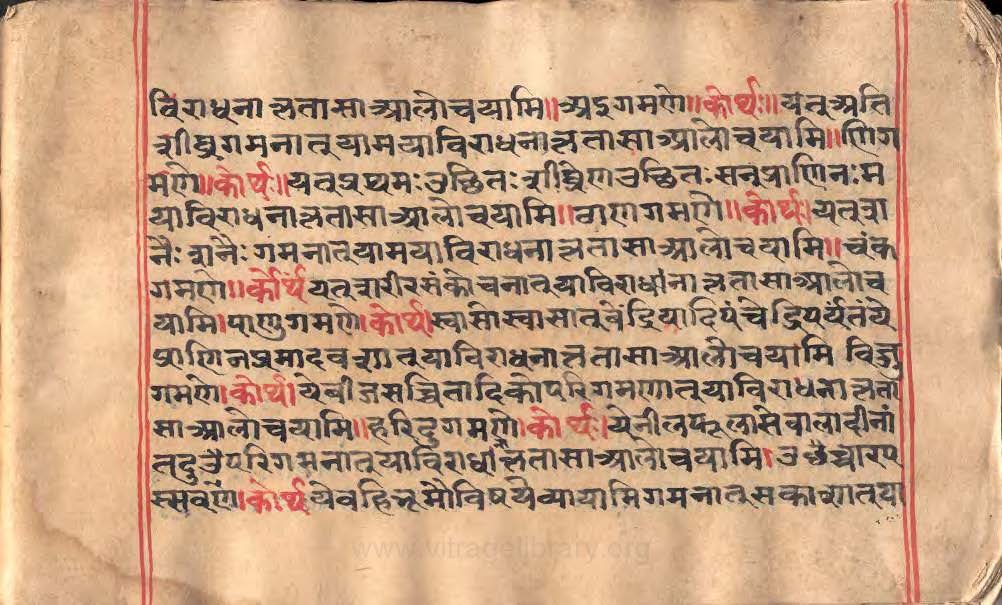 विराधना कृता सा आलोचयामि॥अइगमणे॥कोर्थः॥येतु अति
शीघ्रगमनात् यामयाविराधनाकृतासाआलोचयामि॥णिग
मणे॥कोर्थः॥यत्प्रथमःउछितःशीघ्रेणउछितःसन्प्राणिनःम
याविराधनाकृतासाआलोचयामि॥वाणगमणे॥कोर्थः।यत्श
नैःशनैःगमनात्यामयाविराधनाकृतासाआलोचयामि॥चंक
गमणे॥कोर्थंयत्शरीरसंकोचनात्याविराधनाकृतासाआलोच
यामि।पाणुगमणे।कोर्थ।स्वासोस्वासात्बेंद्रियादिपंचेद्रियर्यंतंये
प्राणिनप्रमादवशात्याविराधनाकृतासाआलोचयामि विज्जु
गमणे।कोर्थ।येबीजसच्चितादिकोपरिगमणात्याविराधनाकृता
साआलोचयामि॥हरिदुगमणे।कोर्थः।येनीलफूलासेवालादीनां
तदुत्रैपरिगमनात्याविराधांकृतासाआलोचयामि।उच्चारप
स्सवणे।कोर्थयेवहिभूमौविषयेव्यायामिगमनात्सकाशात्या
www.vitragelibrary.org